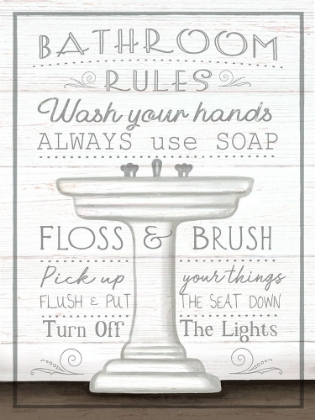 BATHROOM
RULES
Wash your hands
ALWAYS use SOAP
FLOSS & BRUSH
Pick up your things
FLUSH & PUT THE SEAT DOWN
Turn Off The Lights